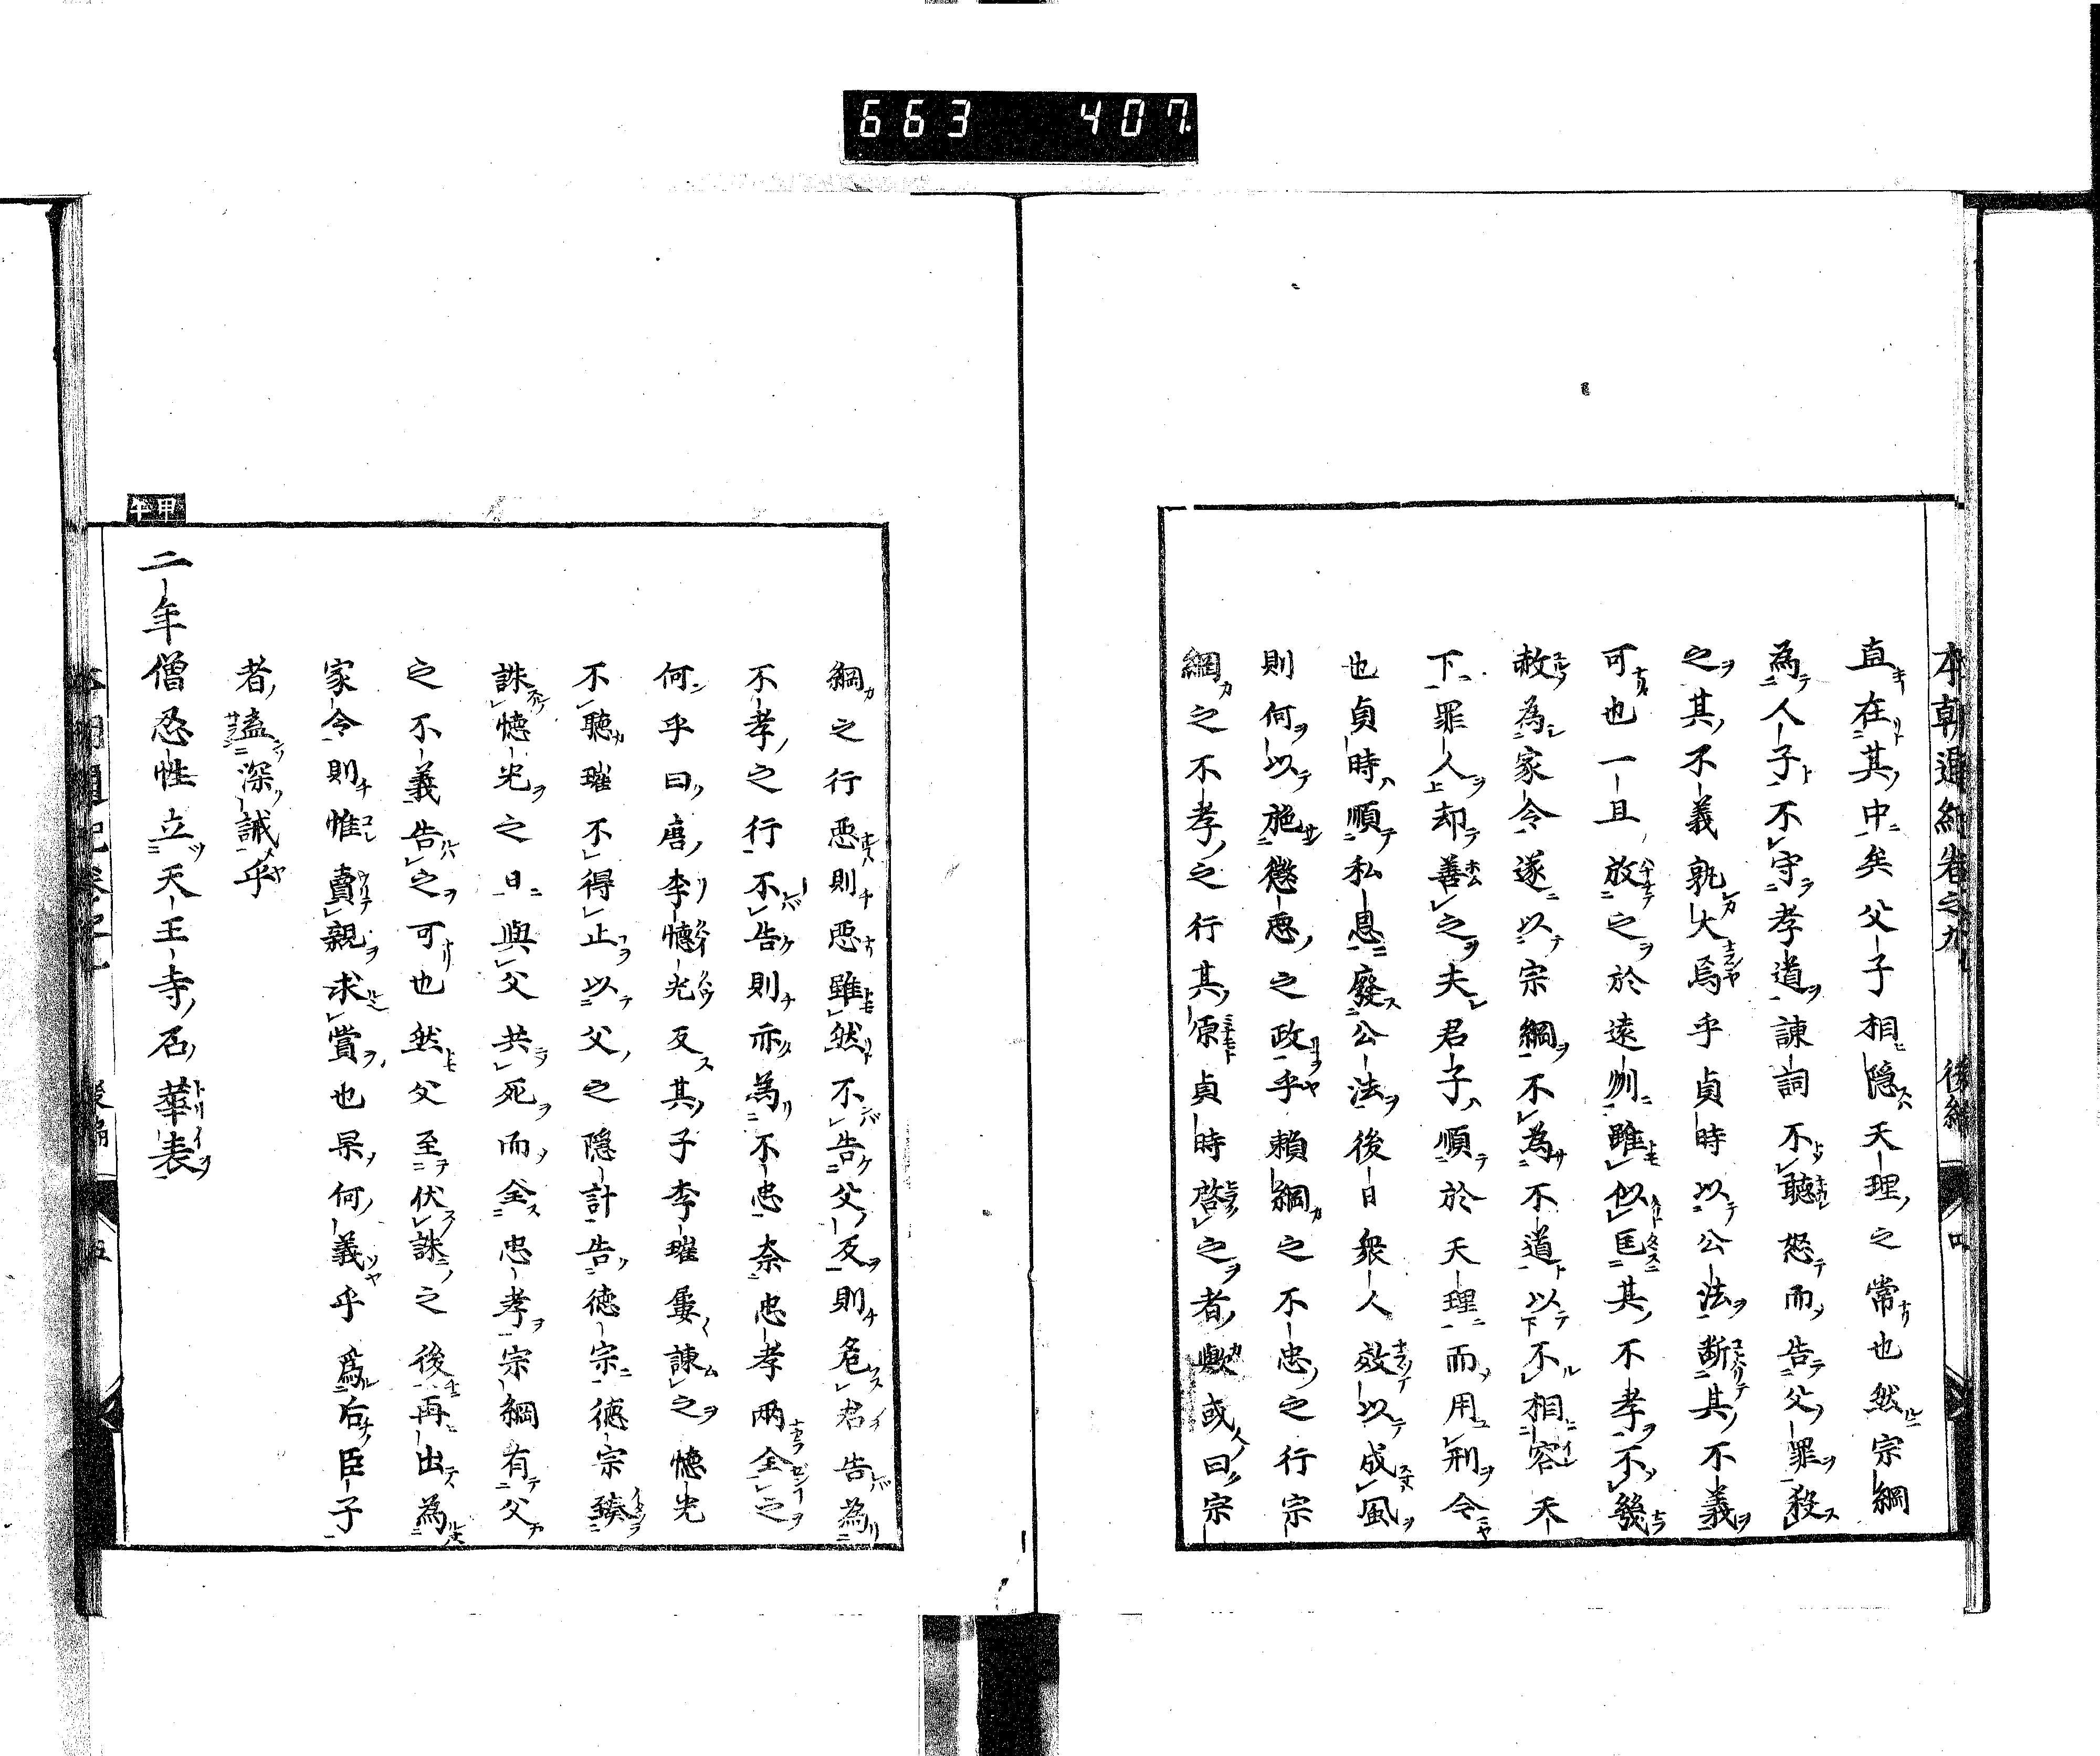 663 407
本朝通紀卷之九 後編
直在其中矣父子相隱天理之常也然宗綱
為人子不守孝道諫詞不聽怒而告父罪殺
之其不義孰大焉乎貞時以公法斷其不義
可也一旦放之於遠州雖似匡其不孝不幾
赦為家令遂以宗綱不為不道以不相容天
下罪人却善之夫君子順於天理而用刑今
也貞時順私恩廢公法後日衆人效以成風
則何以施懲惡之政乎賴綱之不忠之行宗
綱之不孝之行其原貞時啓之者歟或曰宗
綱之行惡則惡雖然不告父反則危君告為
不孝之行不告則亦為不忠奈忠孝兩全之
何乎曰唐李懷光反其子李璀屢諫之懷光
不聽璀不得止以父之隱計告德宗德宗臻
誅懷光之日與父共死而全忠孝宗綱有父
之不義告之可也然父至伏誅之後再出為
家令則惟賣親求賞也果何義乎為后臣子
者盍深誡乎
甲午
二年僧忍性立天王寺石華表